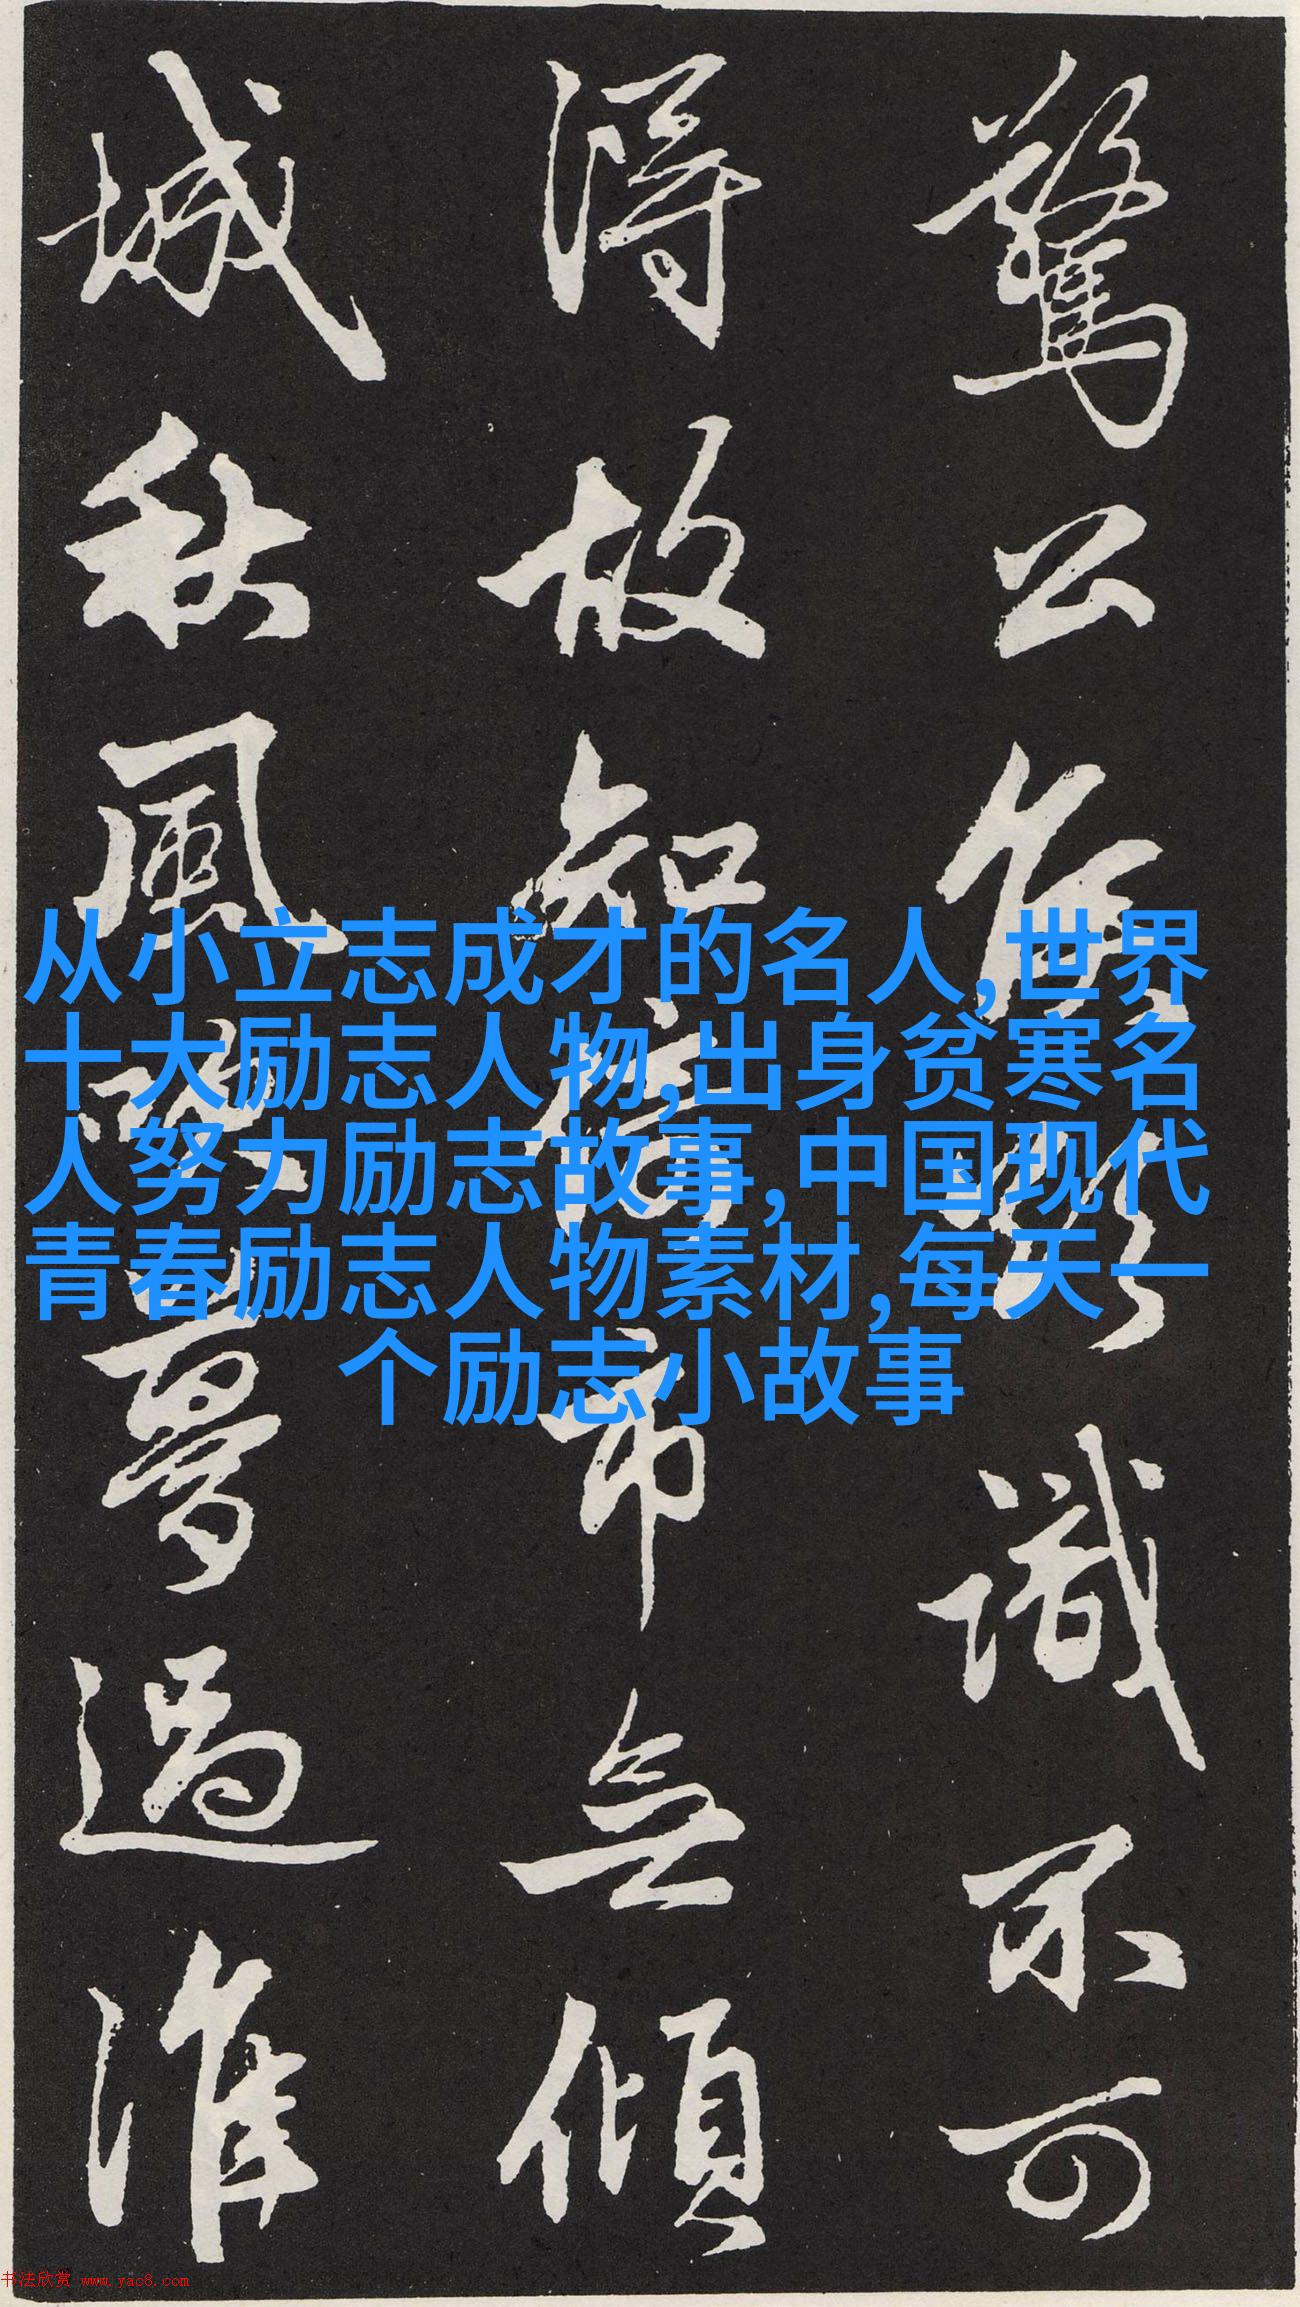 驚公侯識不可
得故知倚市無傾
城秋風夢過淮
从小立志成才的名人,世界
十大励志人物,出身贫寒名
人努力励志故事,中国现代
青春励志人物素材,每天一
个励志小故事
书法欣赏 www.yac8.com